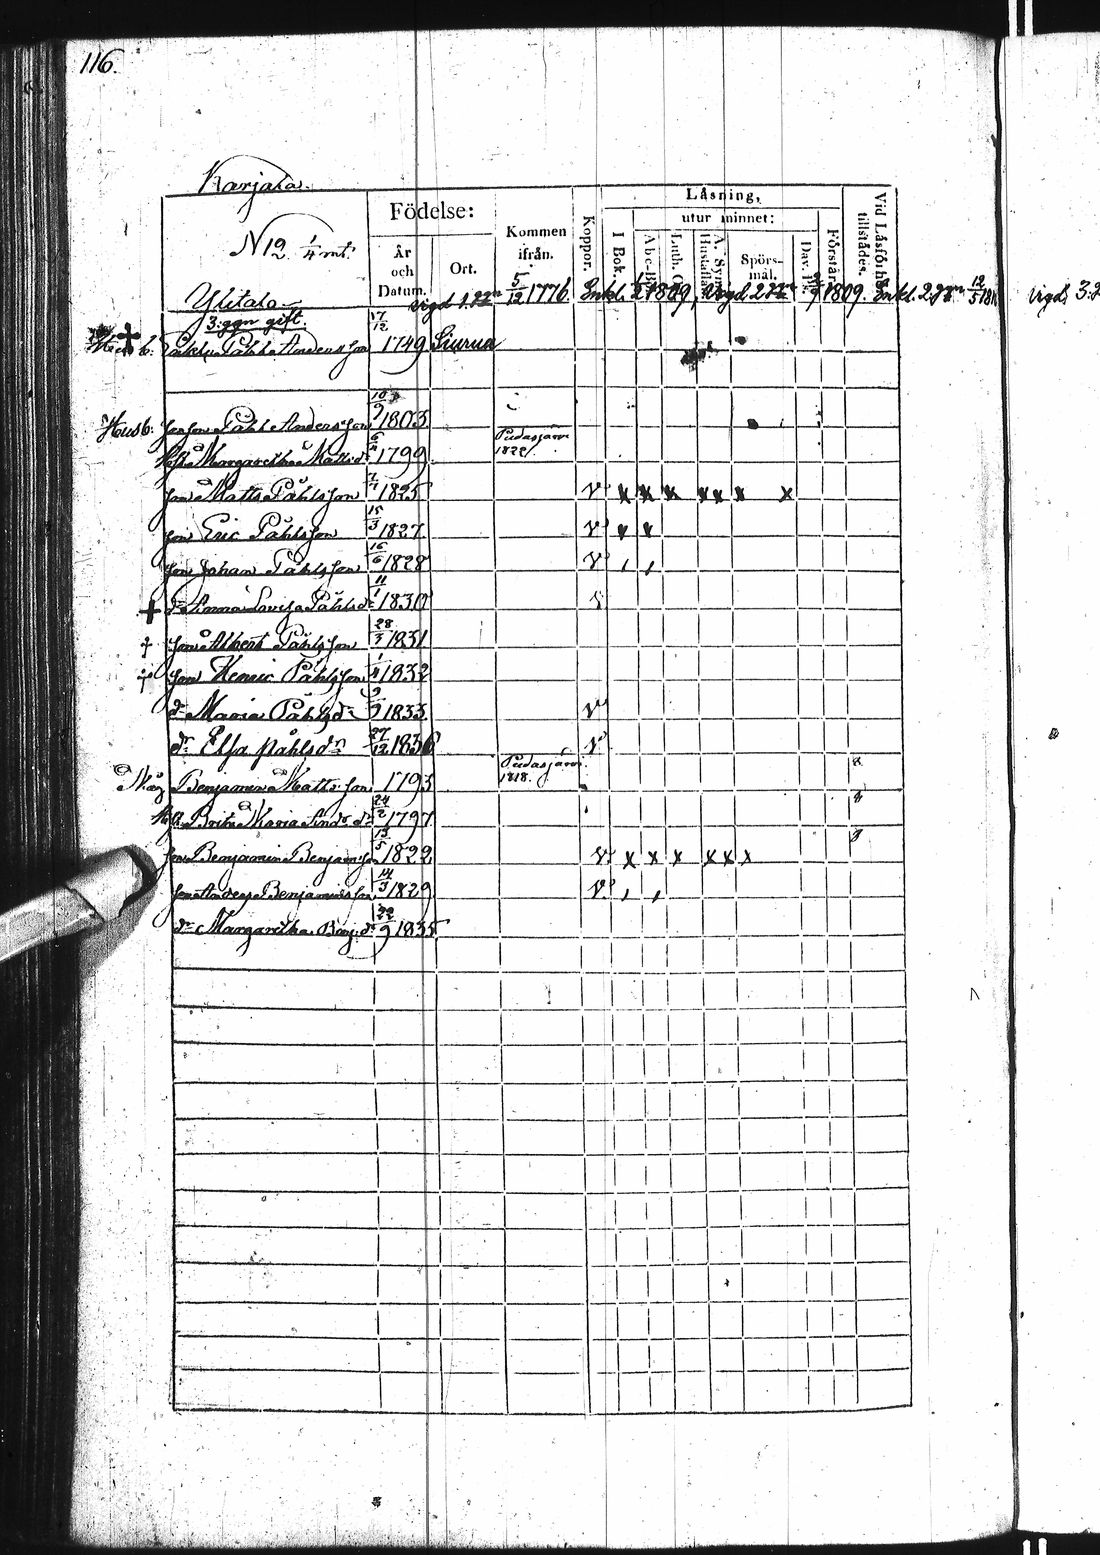 116.
Karjala.
N 12. 1/4 mt.
Ylitalo
Födelse:
År och Datum.
Ort.
Kommen ifrån.
Koppor.
Läsning,
utur minnet:
I Bok.
Spörs-mål.
Förstår
Vid Läsförhör tillstädes.
vigd 1. 5/12 1776. Enkl. 1809, vigd 2 1809. Enkl. 2 gn 12/5 181
vigd 3:
3: ggn gift.
Påhl Andersson 17/12 1749 Siurua
Husb: son Påhl Andersson 10/9 1803
Hu Margaretha Matsdr 6/4 1799 Pudasjärvi 1822.
son Matts Påhlsson 7/7 1825 v x x x x x x x
son Eric Påhlsson 15/3 1827 v x x
son Johan Påhlsson 16/6 1828 v , ,
† dr Anna Lovisa Påhlsdr 11/1 1830 v
† son Albert Påhlsson 28/3 1831
† son Henric Påhlsson 1/4 1832
dr Maria Påhlsdr 9/9 1833 v
dr Elsa påhlsdr 27/12 1836 v
Måg Benjamin Mattsson 1793 Pudasjärvi 1818.
Hu Brita Maria Andrsdr 24/2 1797
son Benjamin Benjamsson 13/5 1822 v x x x x x x
son Anders Benjaminsson 14/3 1829 v , ,
dr Margaretha Benj.dr 22/9 1835